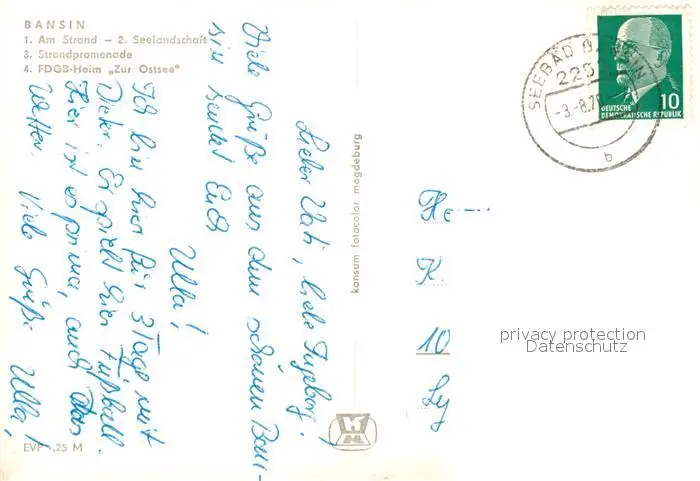 BANSIN
1. Am Strand – 2. Seelandschaft
3. Strandpromenade
4. FDGB-Heim „Zur Ostsee"
Lieber Vati, liebe Ingeborg!
Viele Grüße aus dem schönen Ban-
sin sendet Euch
Ulla!
Ich bin hier für 3 Tage mit
Dieter. Er spielt hier Fußball
Hier ist es prima, auch das
Wetter. Viele Grüße Ulla!
EVP 1,25 M
konsum fotocolor magdeburg
SEEBAD
-3.-8.7
b
10
DEUTSCHE
DEMOKRATISCHE REPUBLIK
He
K.
10
privacy protection
Datenschutz